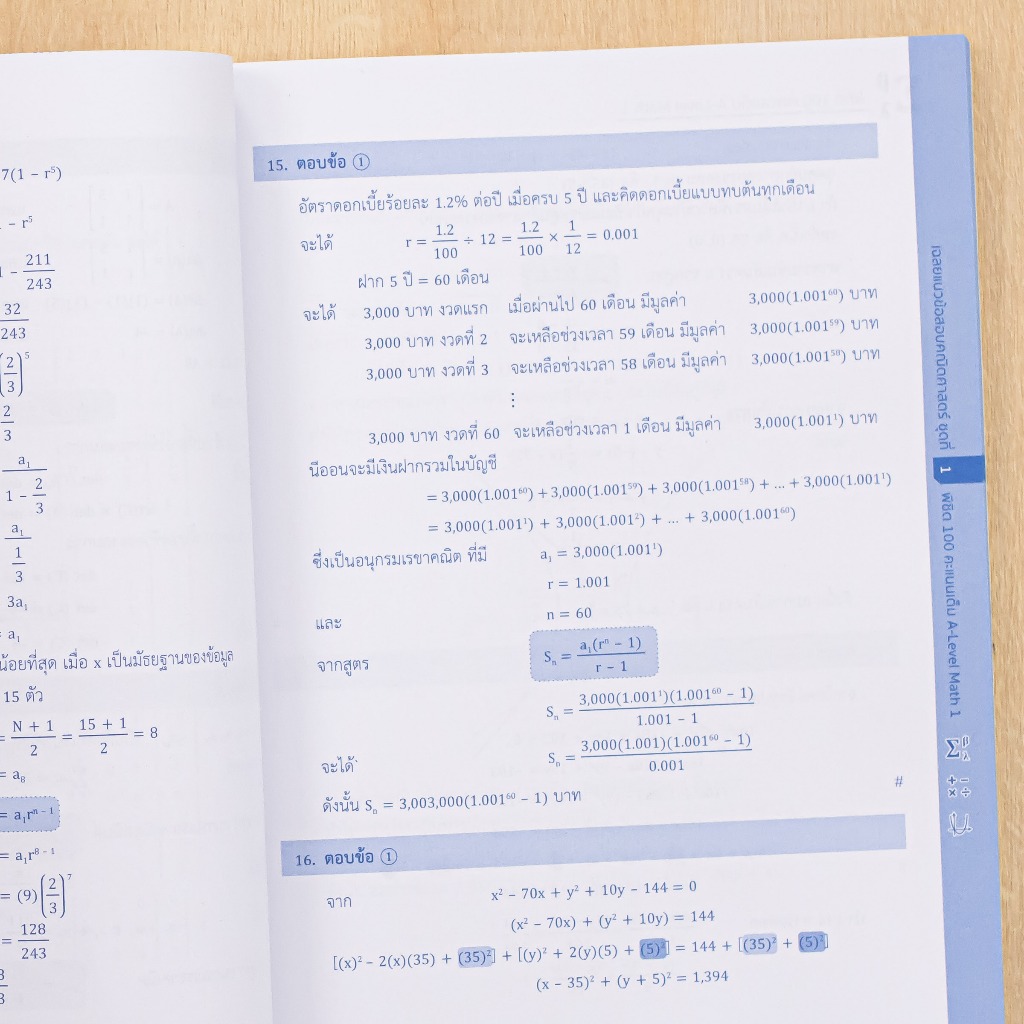 7(1 – r⁵)
– r⁵
– 211/243
32/243
(2/3)⁵
2/3
a₁/(1 – 2/3)
a₁/(1/3)
3a₁
= a₁
น้อยที่สุด เมื่อ x เป็นมัธยฐานของข้อมูล
15 ตัว
= (N + 1)/2 = (15 + 1)/2 = 8
= a₈
= a₁rⁿ ⁻ ¹
= a₁r⁸ ⁻ ¹
= (9)(2/3)⁷
= 128/243
15. ตอบข้อ ①
อัตราดอกเบี้ยร้อยละ 1.2% ต่อปี เมื่อครบ 5 ปี และคิดดอกเบี้ยแบบทบต้นทุกเดือน
จะได้ r = 1.2/100 ÷ 12 = 1.2/100 × 1/12 = 0.001
ฝาก 5 ปี = 60 เดือน
จะได้ 3,000 บาท งวดแรก เมื่อผ่านไป 60 เดือน มีมูลค่า 3,000(1.001⁶⁰) บาท
3,000 บาท งวดที่ 2 จะเหลือช่วงเวลา 59 เดือน มีมูลค่า 3,000(1.001⁵⁹) บาท
3,000 บาท งวดที่ 3 จะเหลือช่วงเวลา 58 เดือน มีมูลค่า 3,000(1.001⁵⁸) บาท
⋮
3,000 บาท งวดที่ 60 จะเหลือช่วงเวลา 1 เดือน มีมูลค่า 3,000(1.001¹) บาท
นีออนจะมีเงินฝากรวมในบัญชี
= 3,000(1.001⁶⁰) + 3,000(1.001⁵⁹) + 3,000(1.001⁵⁸) + ... + 3,000(1.001¹)
= 3,000(1.001¹) + 3,000(1.001²) + ... + 3,000(1.001⁶⁰)
ซึ่งเป็นอนุกรมเรขาคณิต ที่มี a₁ = 3,000(1.001¹)
r = 1.001
และ n = 60
จากสูตร Sₙ = a₁(rⁿ – 1)/(r – 1)
Sₙ = 3,000(1.001¹)(1.001⁶⁰ – 1)/(1.001 – 1)
จะได้ Sₙ = 3,000(1.001)(1.001⁶⁰ – 1)/0.001
ดังนั้น Sₙ = 3,003,000(1.001⁶⁰ – 1) บาท #
16. ตอบข้อ ①
จาก x² – 70x + y² + 10y – 144 = 0
(x² – 70x) + (y² + 10y) = 144
[(x)² – 2(x)(35) + (35)²] + [(y)² + 2(y)(5) + (5)²] = 144 + [(35)² + (5)²]
(x – 35)² + (y + 5)² = 1,394
เฉลยแนวข้อสอบคณิตศาสตร์ ชุดที่ 1 พิชิต 100 คะแนนเต็ม A-Level Math 1